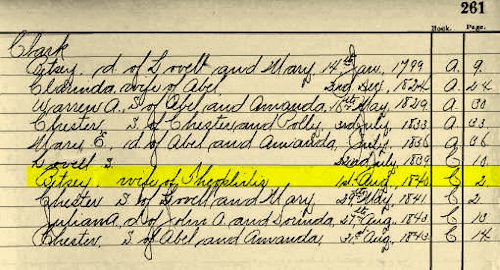 261
Book. Page.
Clark
Betsey, d of Lovell and Mary, 14th Jan, 1799 A. 9.
Clarinda, wife of Abel, 2nd Dec, 1824 A. 24
Warren A. S of Abel and Amanda, 16th May, 1829 A. 30
Chester S of Chester and Polly, 3rd July, 1833 A. 33
Mary E. d of Abel and Amanda, July, 1836 A. 36
Lovell S. 22nd July, 1839 C. 10
Betsey, wife of 1st Aug, 1840 C. 2
Chester S of Lovell and Mary 29th May, 1841 C. 2
Juliana, d of John A and Dorinda, 27th Aug, 1843 C. 13
Chester, S of Abel and Amanda, 31st Aug, 1843 C. 14